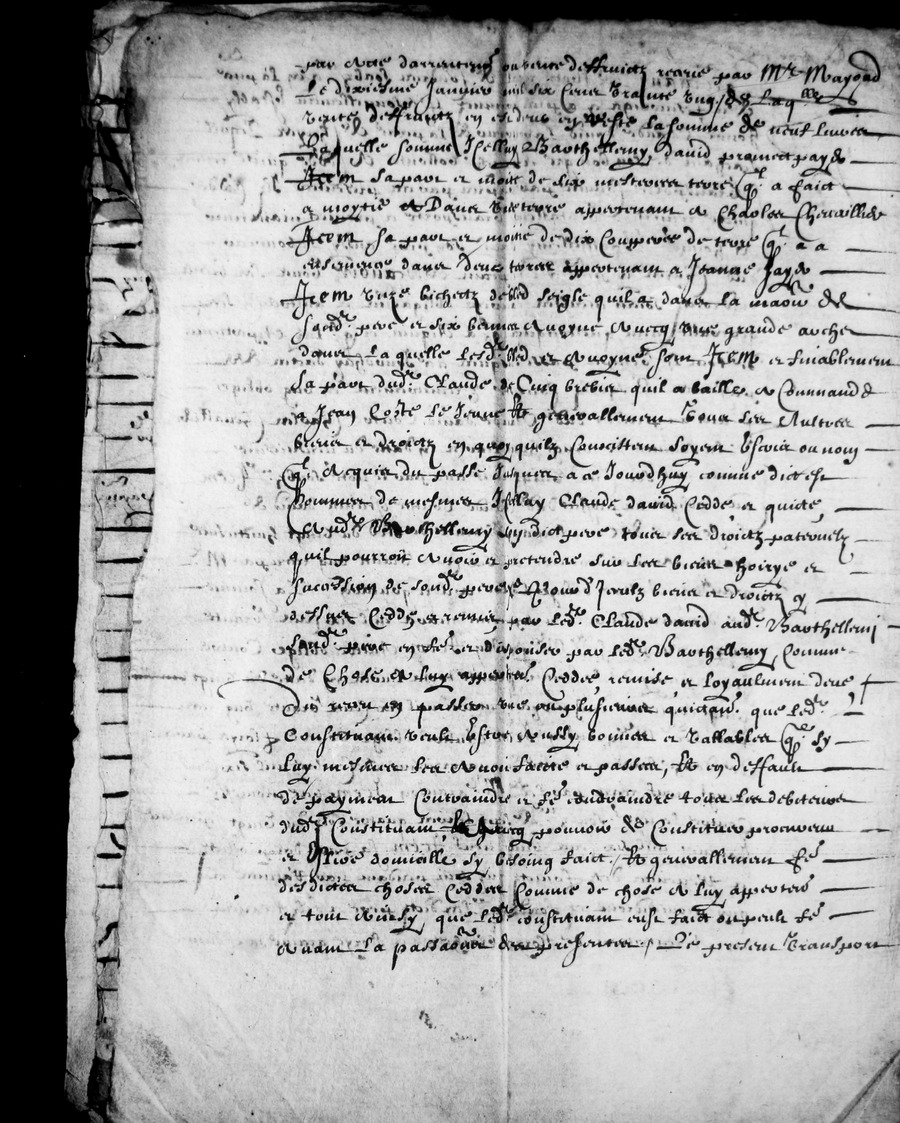 par acte darrentemt ou vente deffruictz receue par Mr Mayoud
Le dixiesme Janvier mil six cens trante ung / de Laqlle
vente deffruictz en est deub en reste La somme de neuf livres
Laquelle somme Icelluy Barthellemy david promect payer
Item sa part et moitie de six mesterees terre ql a faict
a moytie a Dans une terre appertenant a Charles Chevallier
Item sa part et moitie de dix Coupperees de terre ql a a
ensemence dans deux terres appertenant a Jeanne Jay
Item unze bichetz de bled seigle quil a dans La maison de
sondt pere et six bennes avoyne avecq une grande arche
dans Laquelle lesdt bled et avoyne sont Item et finablement
sa part dudt Claude de Cinq brebis quil a baille a Commande
a Jean Coste le Jeune Et generallement tous ses Aultres
biens et droictz en quoy quilz Consistent soyent escris ou non
ql Acquis du passe Jusques a ce Jourdhuy comme dict est
Comme de mesmes Icelluy Claude david Cedde et quicte
Audt Barthellemy sondict pere tous ses droictz paternelz
quil pourroit avoir et pretendre sur les biens hoirye et
succession de sondt pere Pour d'Iceulx biens et droictz cy
dessus Ceddes et remis par ledt Claude david audt Barthellemi
sondt pere en fe et disposer par ledt Barthellemy Comme
de Chose a luy appertent Ceddee remise et loyaulment deue
Du receu en passer une ou plusieurs quictances que ledt
Constituant veult estre aussy bonnes et vallables que sy
luy mesmes les avoit faicte et passees, Et en deffault
de payment Contraindre et fe contraindre tous les debiteurs
dudt Constituant pouvoir de Constituer procureur
et Eslire domicille sy besoing faict / Et generallement fe
desdictes choses Ceddees Comme de chose a luy appertent
et tout ainsy que ledt constituant eust faict ou peult fe
avant La passation des presentes / Le present transport